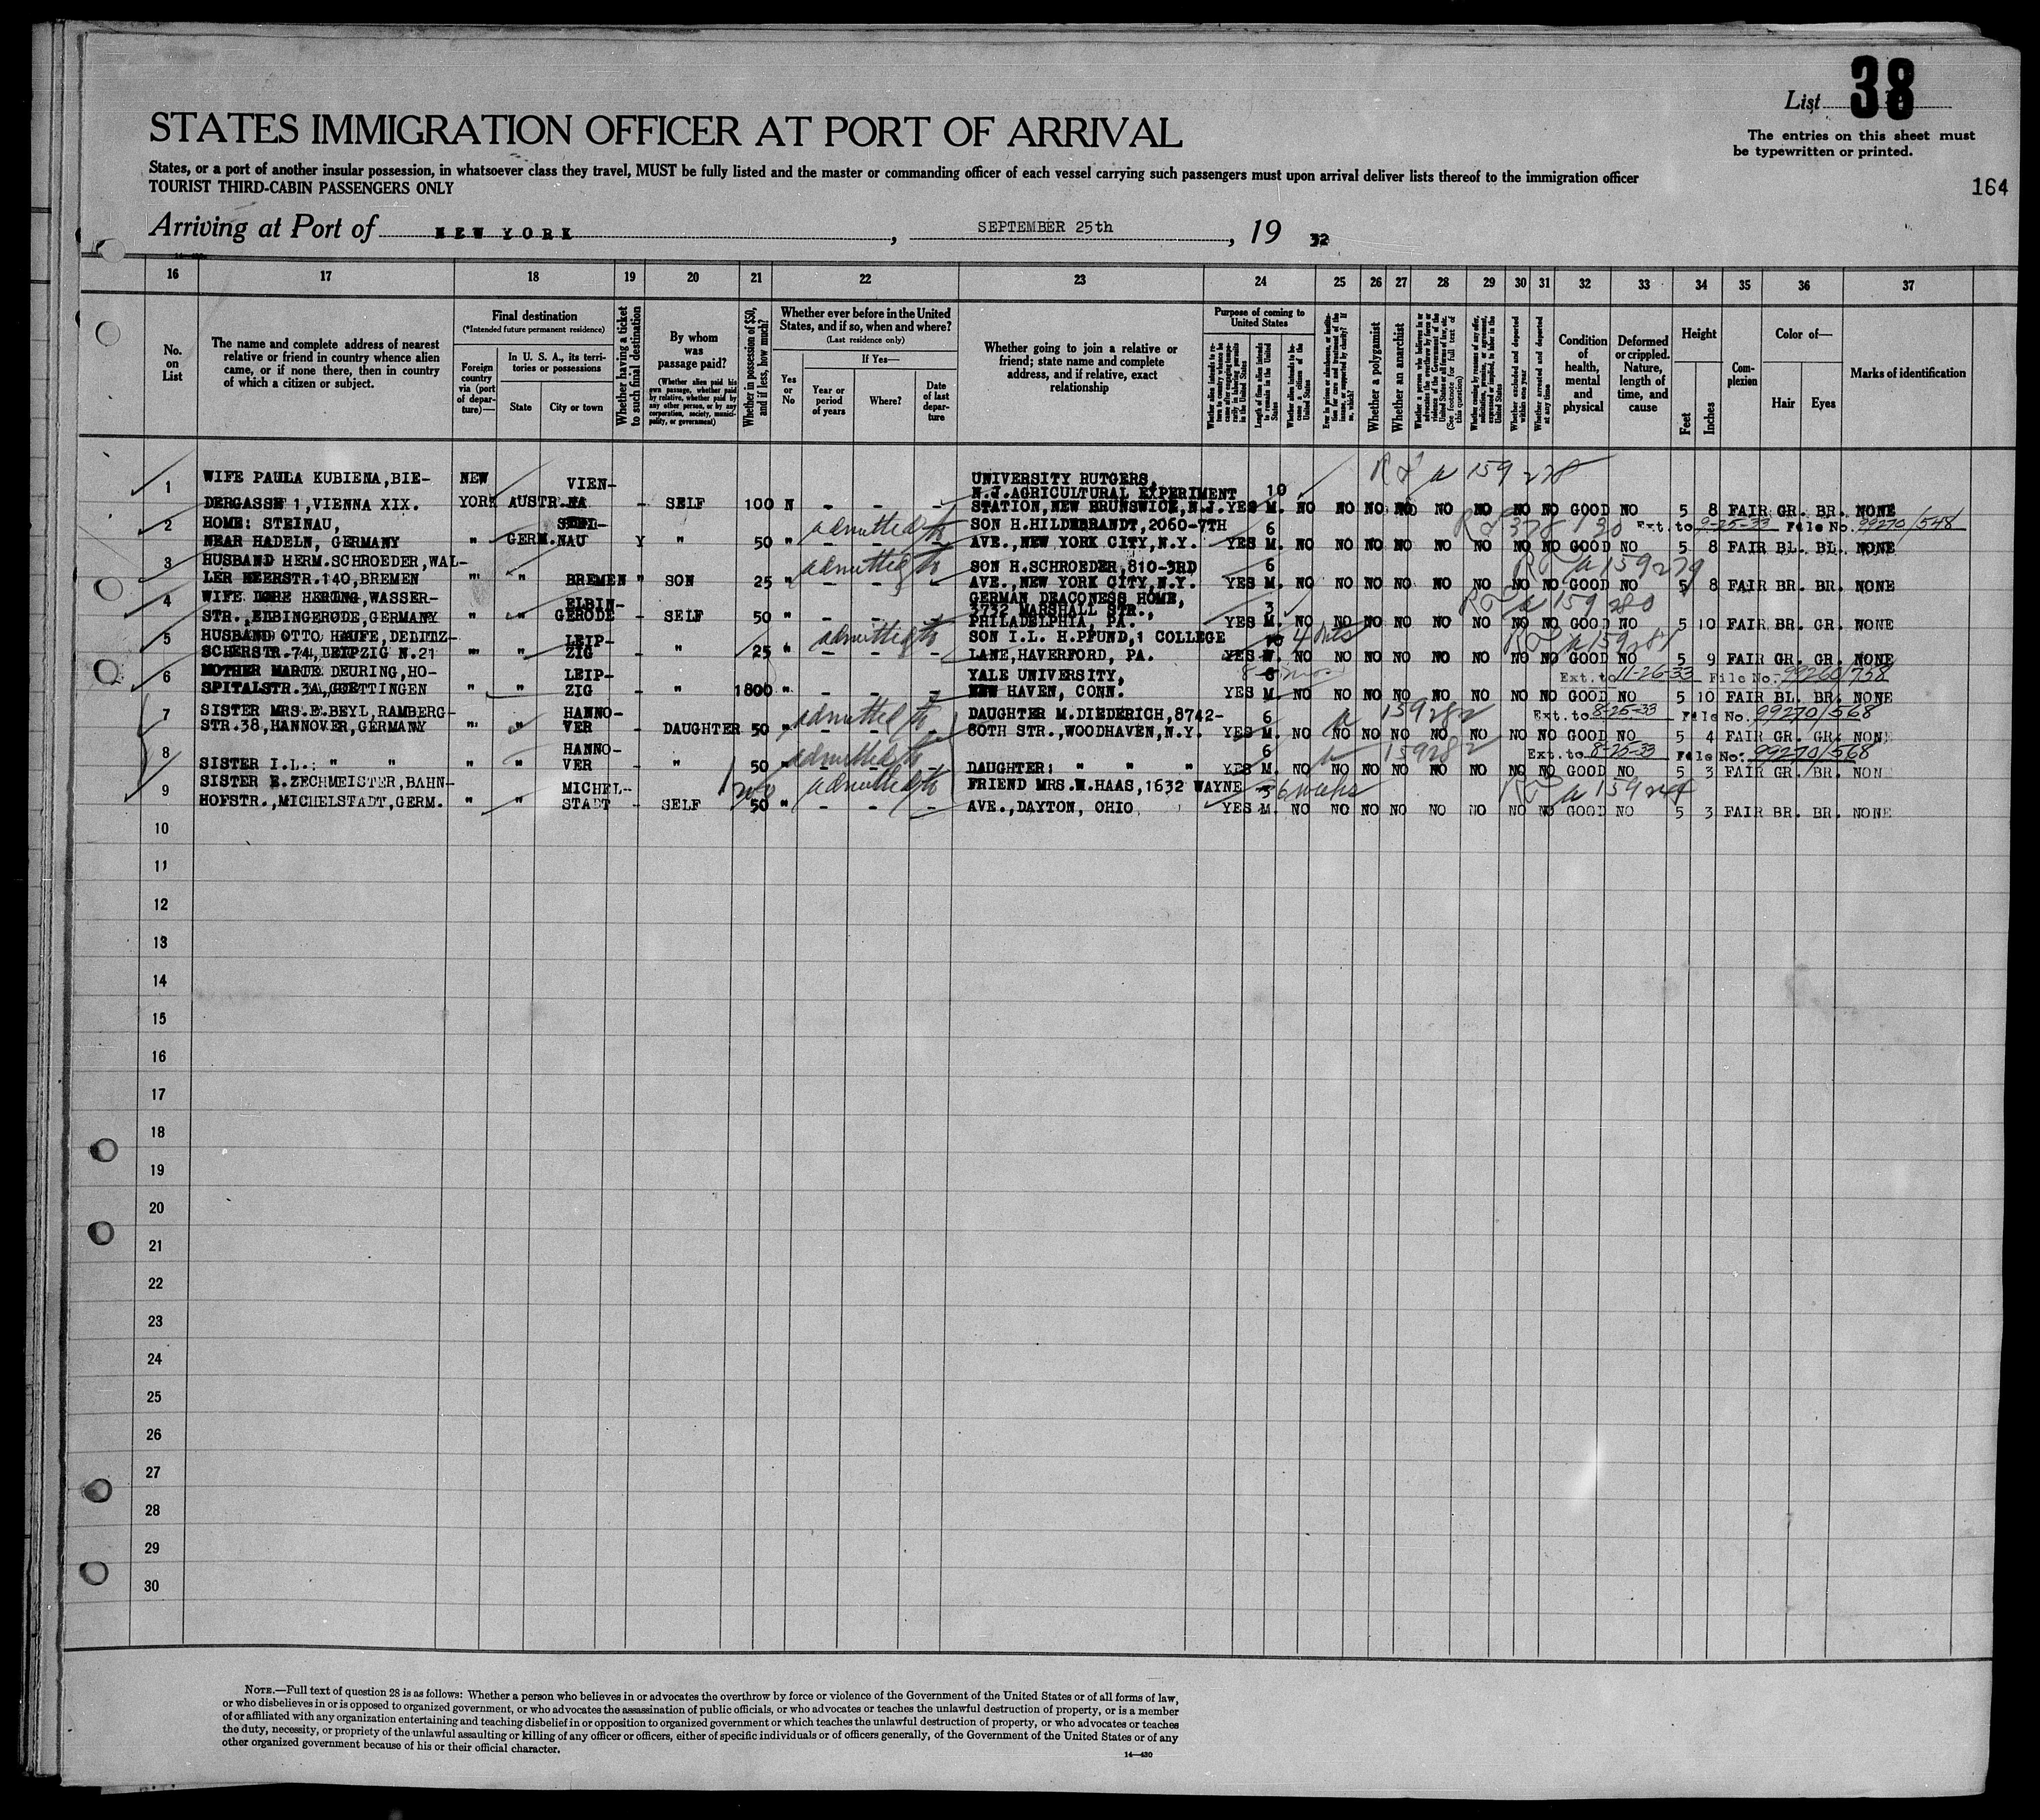 List 38
The entries on this sheet must
be typewritten or printed.
STATES IMMIGRATION OFFICER AT PORT OF ARRIVAL
States, or a port of another insular possession, in whatsoever class they travel, MUST be fully listed and the master or commanding officer of each vessel carrying such passengers must upon arrival deliver lists thereof to the immigration officer
TOURIST THIRD-CABIN PASSENGERS ONLY
164
Arriving at Port of NEW YORK, SEPTEMBER 25th, 19 32
16 17 18 19 20 21 22 23 24 25 26 27 28 29 30 31 32 33 34 35 36 37
No. on List
The name and complete address of nearest relative or friend in country whence alien came, or if none there, then in country of which a citizen or subject.
Final destination
(*Intended future permanent residence)
Foreign country via (port of departure)—
In U. S. A., its territories or possessions
State
City or town
Whether having a ticket to such final destination
By whom was passage paid?
(Whether alien paid his own passage, whether paid by relative, whether paid by any other person, or by any corporation, society, municipality, or government)
Whether in possession of $50, and if less, how much?
Whether ever before in the United States, and if so, when and where?
(Last residence only)
Yes or No
If Yes—
Year or period of years
Where?
Date of last departure
Whether going to join a relative or friend; state name and complete address, and if relative, exact relationship
Purpose of coming to United States
Length of time alien intends to remain in the United States
Whether alien intends to become a citizen of the United States
Whether a polygamist
Whether an anarchist
(See footnote for full text of this question)
Whether excluded and deported within one year
Whether arrested and deported at any time
Condition of health, mental and physical
Deformed or crippled. Nature, length of time, and cause
Height
Feet
Inches
Complexion
Color of—
Hair
Eyes
Marks of identification
1 WIFE PAULA KUBIENA, BIE- NEW VIEN- UNIVERSITY RUTGERS, a 159278
N.J. AGRICULTURAL EXPERIMENT 10
DERGASSE 1, VIENNA XIX. YORK AUSTR. NA - SELF 100 N - - - STATION, NEW BRUNSWICK, N.J. YES M. NO NO NO NO NO NO NO NO GOOD NO 5 8 FAIR GR. BR. NONE
2 HOME: STEINAU, admitted SON H.HILDEBRANDT, 2060-7TH 6 378 130 Ext. to 9-25-33 File No. 99270/548
NEAR HADELN, GERMANY " GERM. NAU Y " 50 " - - - AVE., NEW YORK CITY, N.Y. YES M. NO NO NO NO NO NO NO NO GOOD NO 5 8 FAIR BL. BL. NONE
3 HUSBAND HERM.SCHROEDER, WAL- admitted SON H.SCHROEDER, 810-3RD 6 a 159279
LER HEERSTR. 140, BREMEN " " BREMEN " SON 25 " - - - AVE., NEW YORK CITY, N.Y. YES M. NO NO NO NO NO NO NO NO GOOD NO 5 8 FAIR BR. BR. NONE
4 WIFE LORE HERING, WASSER- ELBIN- GERMAN DEACONESS HOME, a 159280
3732 MARSHALL STR., 3
STR., ELBINGERODE, GERMANY " " GERODE - SELF 50 " - - - PHILADELPHIA, PA. YES M. NO NO NO NO NO NO NO NO GOOD NO 5 10 FAIR BR. GR. NONE
5 HUSBAND OTTO HAUFE, DELITZ- LEIP- admitted SON I.L. H.PFUND, 1 COLLEGE 4 a 159281
SCHERSTR.74, LEIPZIG N.21 " " ZIG - " 25 " - - - LANE, HAVERFORD, PA. YES NO NO NO NO NO NO NO NO GOOD NO 5 9 FAIR GR. GR. NONE
6 MOTHER MARIE DEURING, HO- LEIP- YALE UNIVERSITY, Ext. to 11-26-33 File No. 99260/758
SPITALSTR.3A, GOETTINGEN " " ZIG - " 1800 " - - - NEW HAVEN, CONN. YES M. NO NO NO NO NO NO NO NO GOOD NO 5 10 FAIR BL. BR. NONE
7 SISTER MRS.E.BEYL, RAMBERG- HANNO- admitted DAUGHTER M.DIEDERICH, 8742- 6 a 159282 Ext. to 8-25-33 File No. 99270/568
STR.38, HANNOVER, GERMANY " " VER - DAUGHTER 50 " - - - 80TH STR., WOODHAVEN, N.Y. YES M. NO NO NO NO NO NO NO NO GOOD NO 5 4 FAIR GR. GR. NONE
8 HANNO- admitted 6 159282 Ext. to 8-25-33 File No. 99270/568
SISTER I.L.: " " " " VER - " 50 " - - - DAUGHTER: " " " YES M. NO NO NO NO NO NO NO NO GOOD NO 5 3 FAIR GR. BR. NONE
9 SISTER E.ZECHMEISTER, BAHN- MICHEL- 200 admitted FRIEND MRS.W.HAAS, 1632 WAYNE 3 6 weeks
HOFSTR., MICHELSTADT, GERM. " " STADT - SELF 50 " - - - AVE., DAYTON, OHIO YES M. NO NO NO NO NO NO NO NO GOOD NO 5 3 FAIR BR. BR. NONE
10
11
12
13
14
15
16
17
18
19
20
21
22
23
24
25
26
27
28
29
30
NOTE.—Full text of question 28 is as follows: Whether a person who believes in or advocates the overthrow by force or violence of the Government of the United States or of all forms of law,
or who disbelieves in or is opposed to organized government, or who advocates the assassination of public officials, or who advocates or teaches the unlawful destruction of property, or is a member
of or affiliated with any organization entertaining and teaching disbelief in or opposition to organized government or which teaches the unlawful destruction of property, or who advocates or teaches
the duty, necessity, or propriety of the unlawful assaulting or killing of any officer or officers, either of specific individuals or of officers generally, of the Government of the United States or of any
other organized government because of his or their official character.
14—430